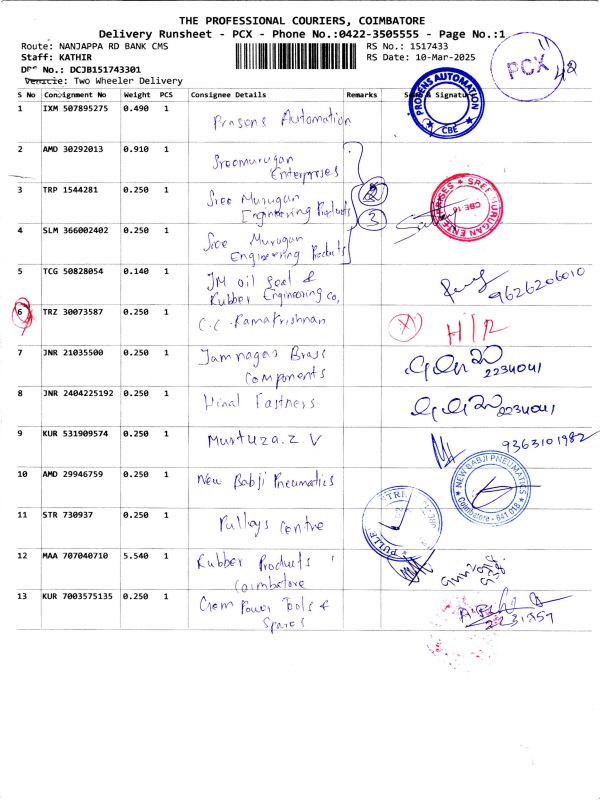 THE PROFESSIONAL COURIERS, COIMBATORE
Delivery Runsheet - PCX - Phone No.:0422-3505555 - Page No.:1
Route: NANJAPPA RD BANK CMS
RS No.: 1517433
Staff: KATHIR
RS Date: 10-Mar-2025
No.: DCJB151743301
Vehicle: Two Wheeler Delivery
PCX
S No Consignment No Weight PCS Consignee Details Remarks Signature
PROSENS AUTOMATION
CBE
1 IXM 507895275 0.490 1 Prasons Automation
2 AMD 30292013 0.910 1 Sreemurugan
Enterprises
3 TRP 1544281 0.250 1 Sree Murugan
Engineering Products
3
SREE MURUGAN ENTERPRISES
CBE-18
4 SLM 366002402 0.250 1 Sree Murugan
Engineering Products
5 TCG 50828054 0.140 1 JM oil Seal &
Rubber Engineering Co,
9626206010
6 TRZ 30073587 0.250 1 C.C. Ramakrishnan X H/R
7 JNR 21035500 0.250 1 Jamnagar Brass
Components
2234041
8 JNR 2404225192 0.250 1 Hinal Fastners
2234041
9 KUR 531909574 0.250 1 Murtuza.Z V
9363101982
10 AMD 29946759 0.250 1 New Babji Pneumatics
NEW BABJI PNEUMATICS
Coimbatore - 641 018
11 STR 730937 0.250 1 Pulleys Centre
12 MAA 707040710 5.540 1 Rubber Products
Coimbatore
13 KUR 7003575135 0.250 1 Gem Power Tools &
Spares